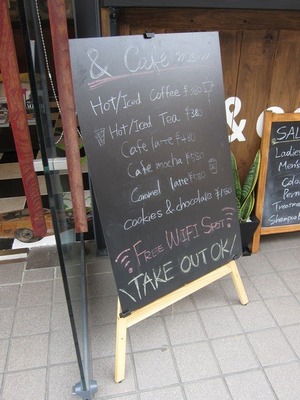 & Café menu
Hot/Iced Coffee ¥380
Hot/Iced Tea ¥380
Cafe latte ¥480
Cafe mocha ¥580
Caramel latte
Cookies & chocolate ¥150
FREE WIFI SPOT
\TAKE OUT OK/
& C
SAL
Ladies
Men's
Color
Perm
Treatment
Shampoo